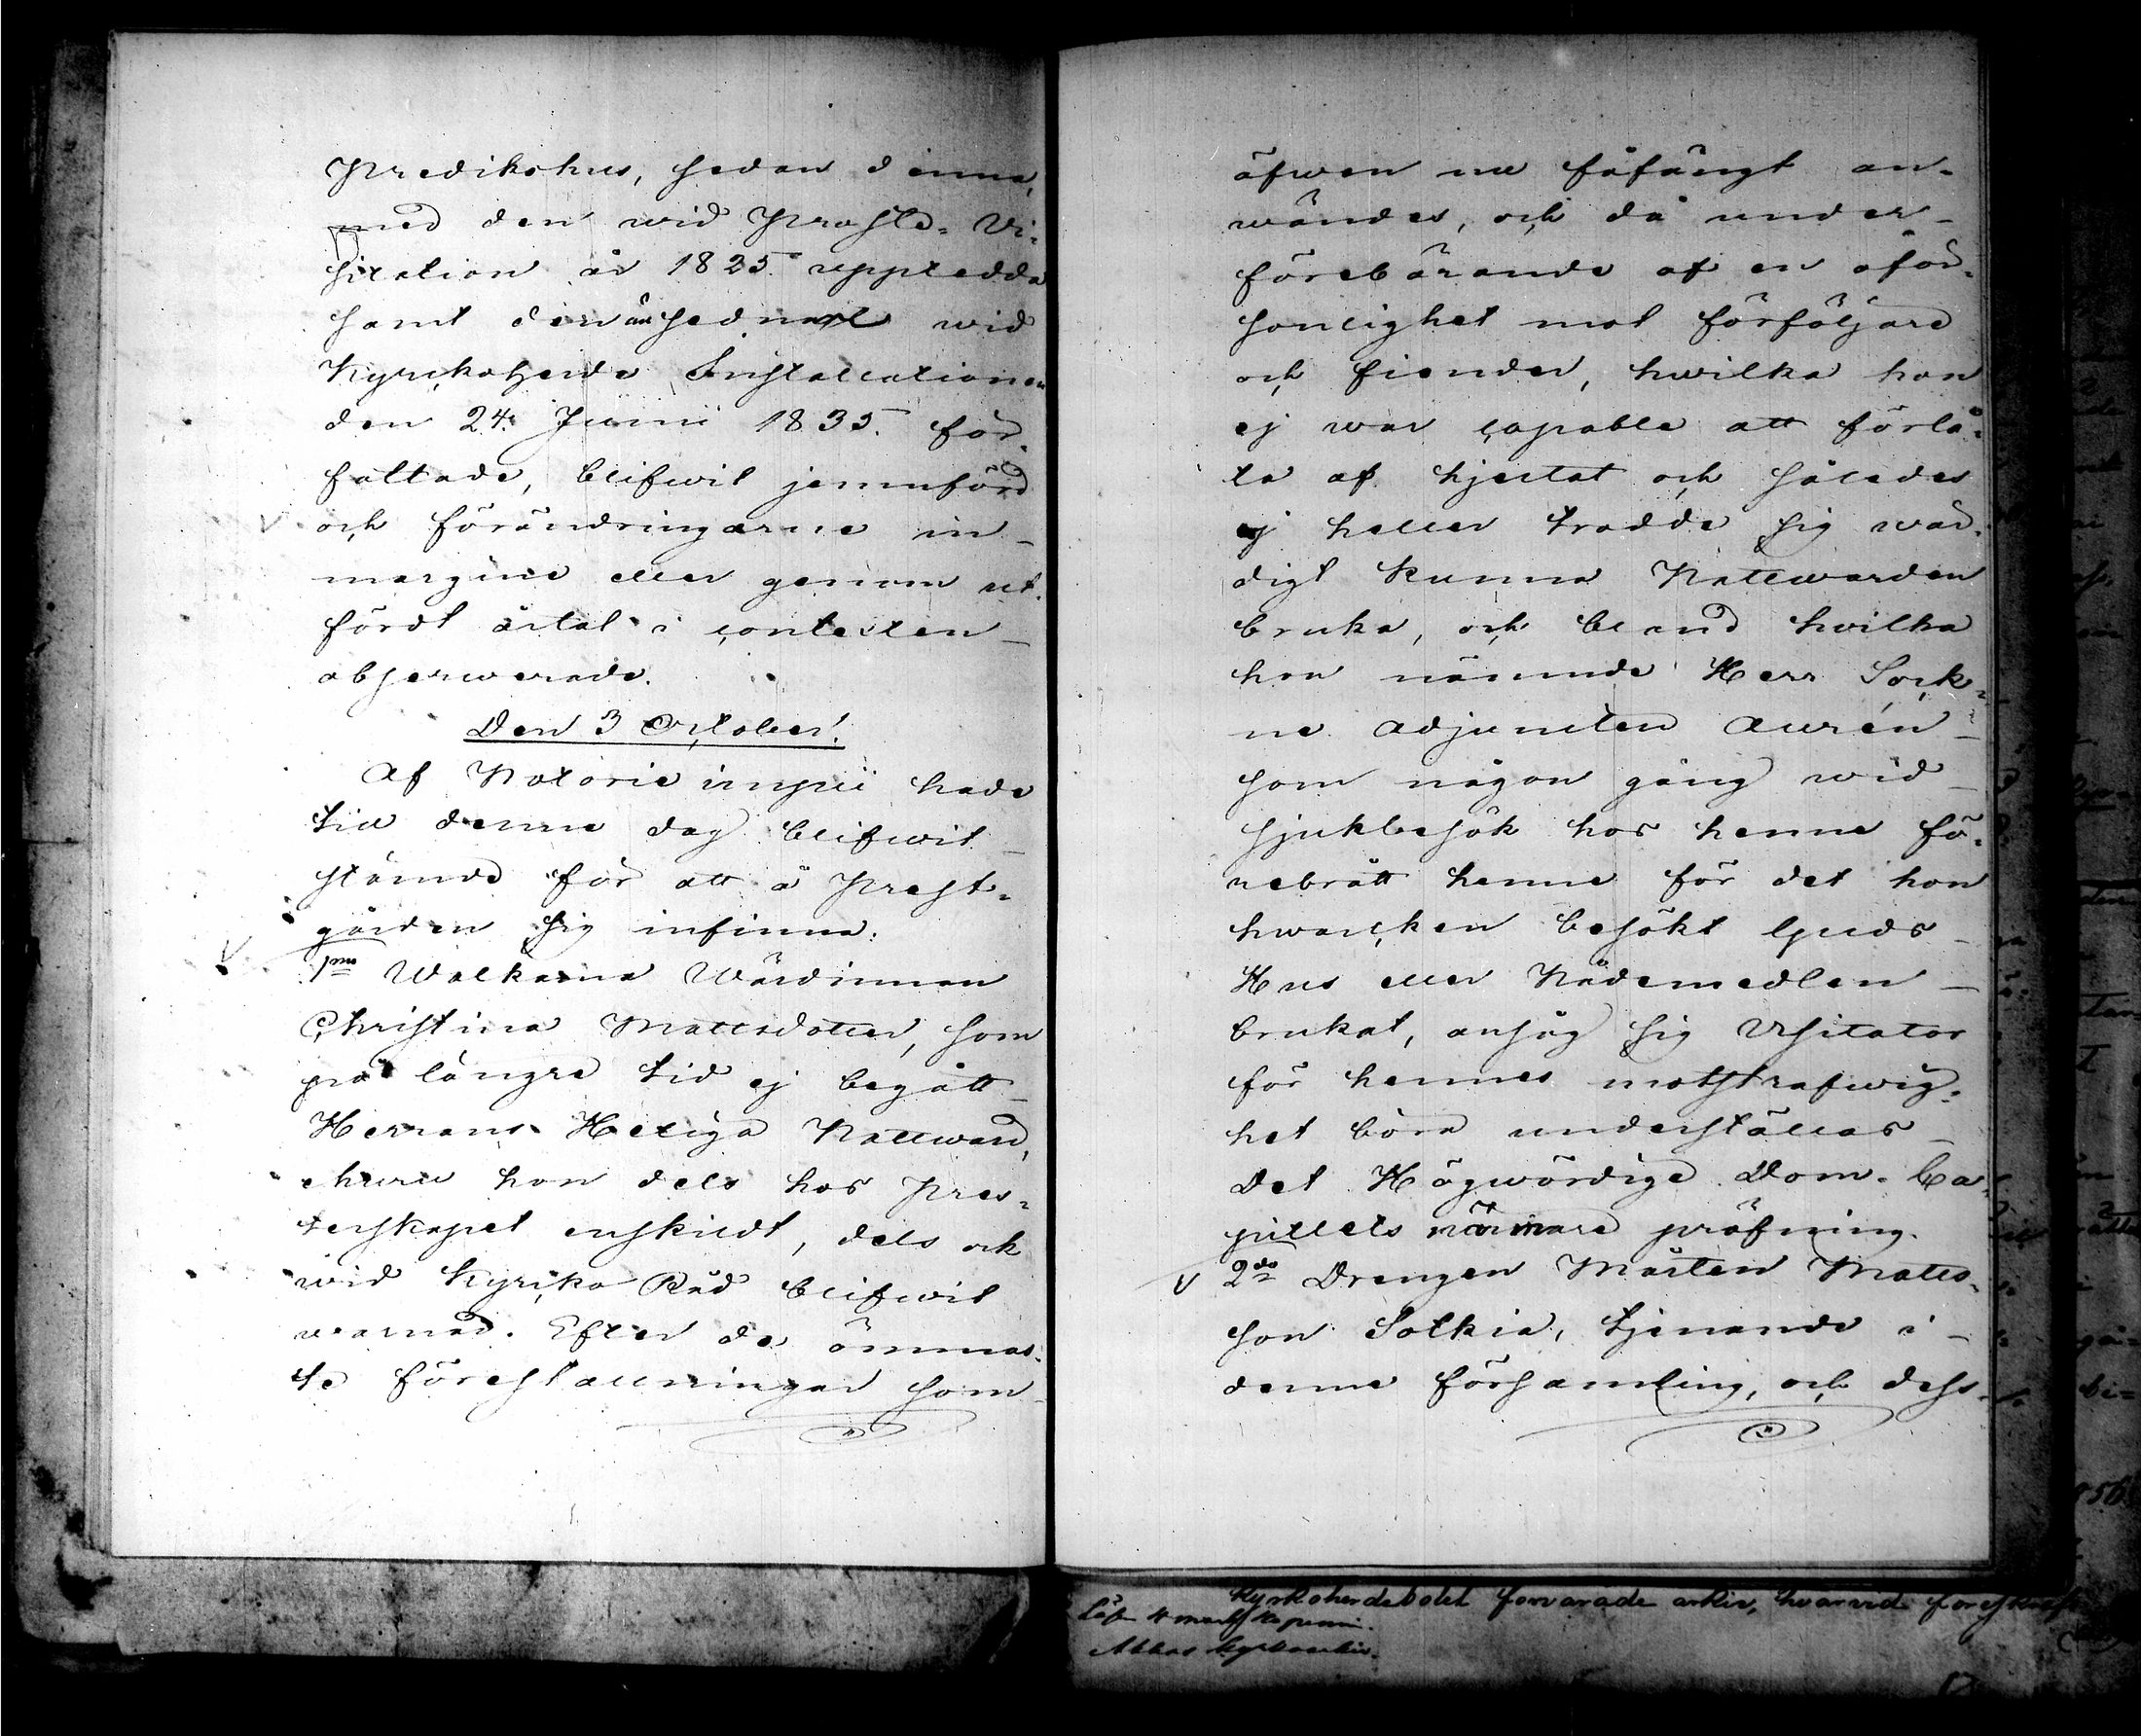 Predikohus, sedan denna,
med den wid Proste-Vi-
sitation år 1825. uppredda
samt den än sednare wid
Kyrckoherde Installationen
den 24. Junii 1835. för-
fattade, blifwit jemnförd
och förändringarne in
margine eller genom ut-
fördt årtal i contexten
observerade.
Den 3 October.
Af Notorie impii hade
till denna dag blifwit
stämde för att å Prest-
gården sig infinna:
1mo Walkama Wärdinnan
Christina Mattsdotter, som
på längre tid ej begått
Herrans Heliga Nattward,
ehuru hon dels hos Pres-
terskapet enskildt, dels ock
wid Kyrcko Råd blifwit
warnad. Efter de ömmas-
te föreställningar som
äfwen nu fåfängt an-
wändes, och då under
förebärande af en oför-
sonlighet mot förföljare
och fiender, hwilka hon
ej war capable att förlå-
ta af hjertat och således
ej heller trodde sig wär-
digt kunna Nattwarden
bruka, och bland hwilka
hon nämnde Herr Sock-
ne Adjuncten Aurén
som någon gång wid
sjukbesök hos henne fö-
rebrått henne för det hon
hwarcken besökt Guds
Hus eller Nådemedlen
brukat, ansåg sig Visitator
för hennes motsträfwig-
het böra underställas
Det Högwördige Dom-Ca-
pitlets närmare pröfning.
2do Drengen Mårten Matts-
son Solkia, tjenande i
denna församling, och dess
Kyrkoherdebolet förvarade arkiv, hvarvid